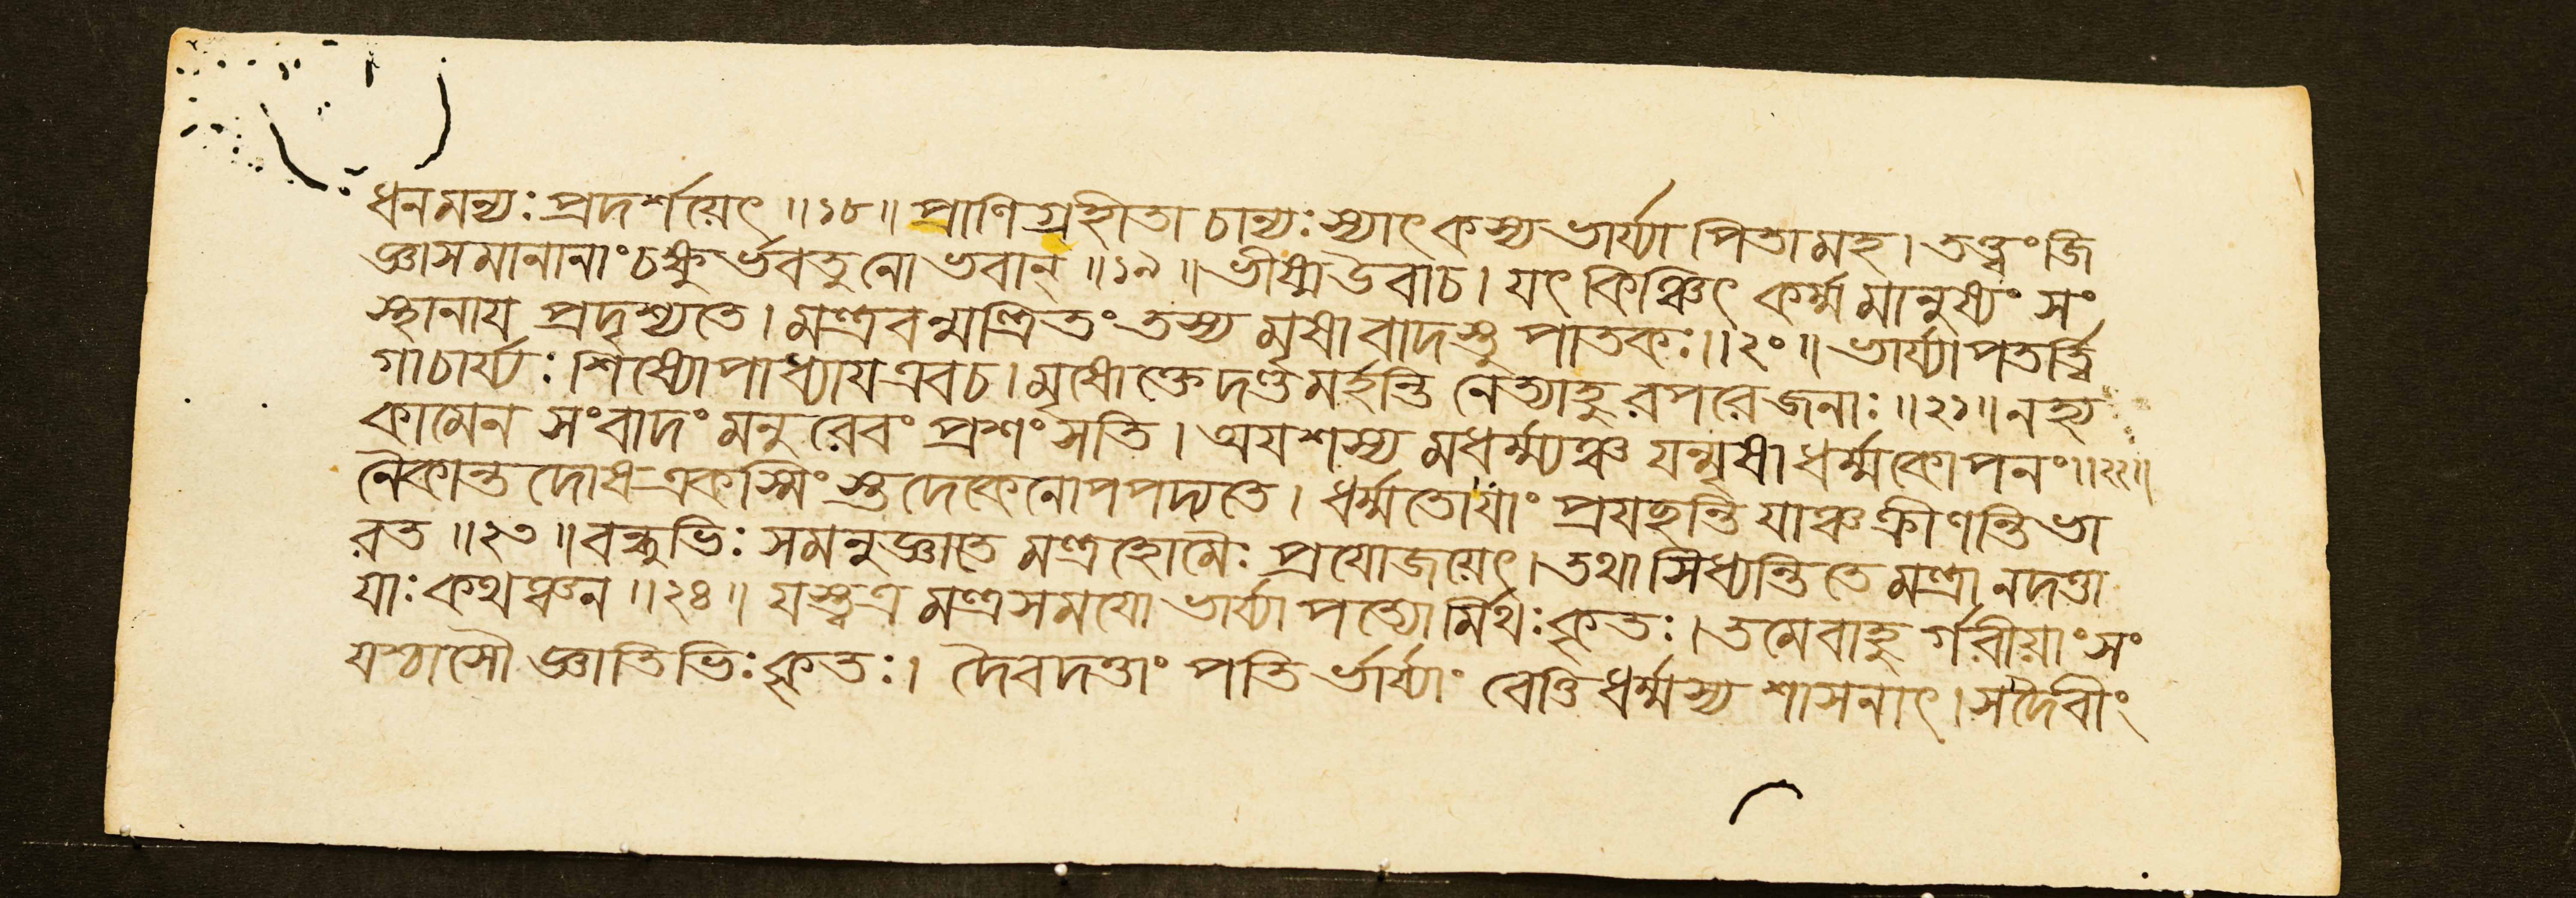 ধনমন্যঃ প্রদর্শয়েৎ ॥১৮॥ প্রাণিগ্রহীতা চান্যঃ স্যাৎ কস্য ভার্য্যা পিতামহ। তত্ত্বং জি
জ্ঞাসমানানাং চক্ষুর্ভবতু নো ভবান্ ॥১৯॥ ভীষ্মউবাচ। যৎ কিঞ্চিৎ কর্ম্ম মানুষ্যং সং
স্থানায প্রদৃশ্যতে। মন্ত্রবন্মন্ত্রিতং তস্য মৃষাবাদস্তু পাতকঃ॥২০॥ ভার্য্যাপতর্ত্বি
গাচার্য্যঃ শিষ্যোপাধ্যায এবচ। মৃষোক্তে দণ্ডমর্হন্তি নেত্যাহুরপরে জনাঃ॥২১॥ নহ্য
কামেন সংবাদং মনুরেবং প্রশংসতি। অযশস্য মধর্ম্ম্যঞ্চ যন্মৃষা ধর্ম্মকোপনং॥২২॥
নৈকান্তদোষ একস্মিংস্তুদেকেনোপপদ্যতে। ধর্ম্মতো যাং প্রযছন্তি যাঞ্চ ক্রীণন্তি ভা
রত ॥২৩॥ বন্ধুভিঃ সমনুজ্ঞাতে মন্ত্রহোমৈঃ প্রযোজয়েৎ। তথা সিধ্যন্তি তে মন্ত্রা নদত্তা
যাঃ কথঞ্চন ॥২৪॥ যস্ত্বত্র মন্ত্রসমযো ভার্য্যাপত্যোর্মিথঃ কৃতঃ। তমেবাহুর্গরীয়াংসং
যশ্চাসৌ জ্ঞাতিভিঃ কৃতঃ। দৈবদত্তাং পতির্ভার্য্যাং বেত্তি ধর্ম্মস্য শাসনাৎ। সদৈবীং